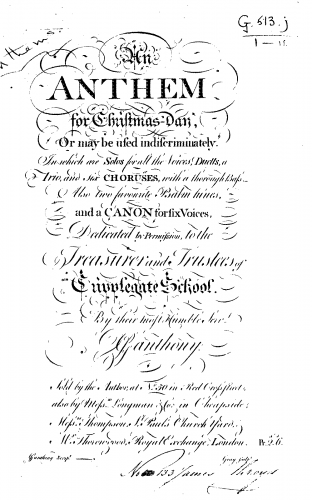 G. 513. j
An
ANTHEM
for Christmas-Day,
Or may be used indiscriminately.
In which are Solos for all the Voices, Duetts, a
Trio, and Six CHORUSES, with a thorough Bass.
Also two favourite Psalm tunes,
and a CANON for six Voices,
Dedicated by Permission, to the
Treasurer and Trustees of
Cripplegate School.
By their most Humble Serv.^t
Ganthony
Sold by the Author, at N.^o 50 in Red Cross street
also by Mess.^rs Longman & Co. in Cheapside;
Mess.^rs Thompson S.^t Paul's Church Yard;
W.^m Thorowgood, Royal Exchange, London. Pr. 2.^s 6.
James